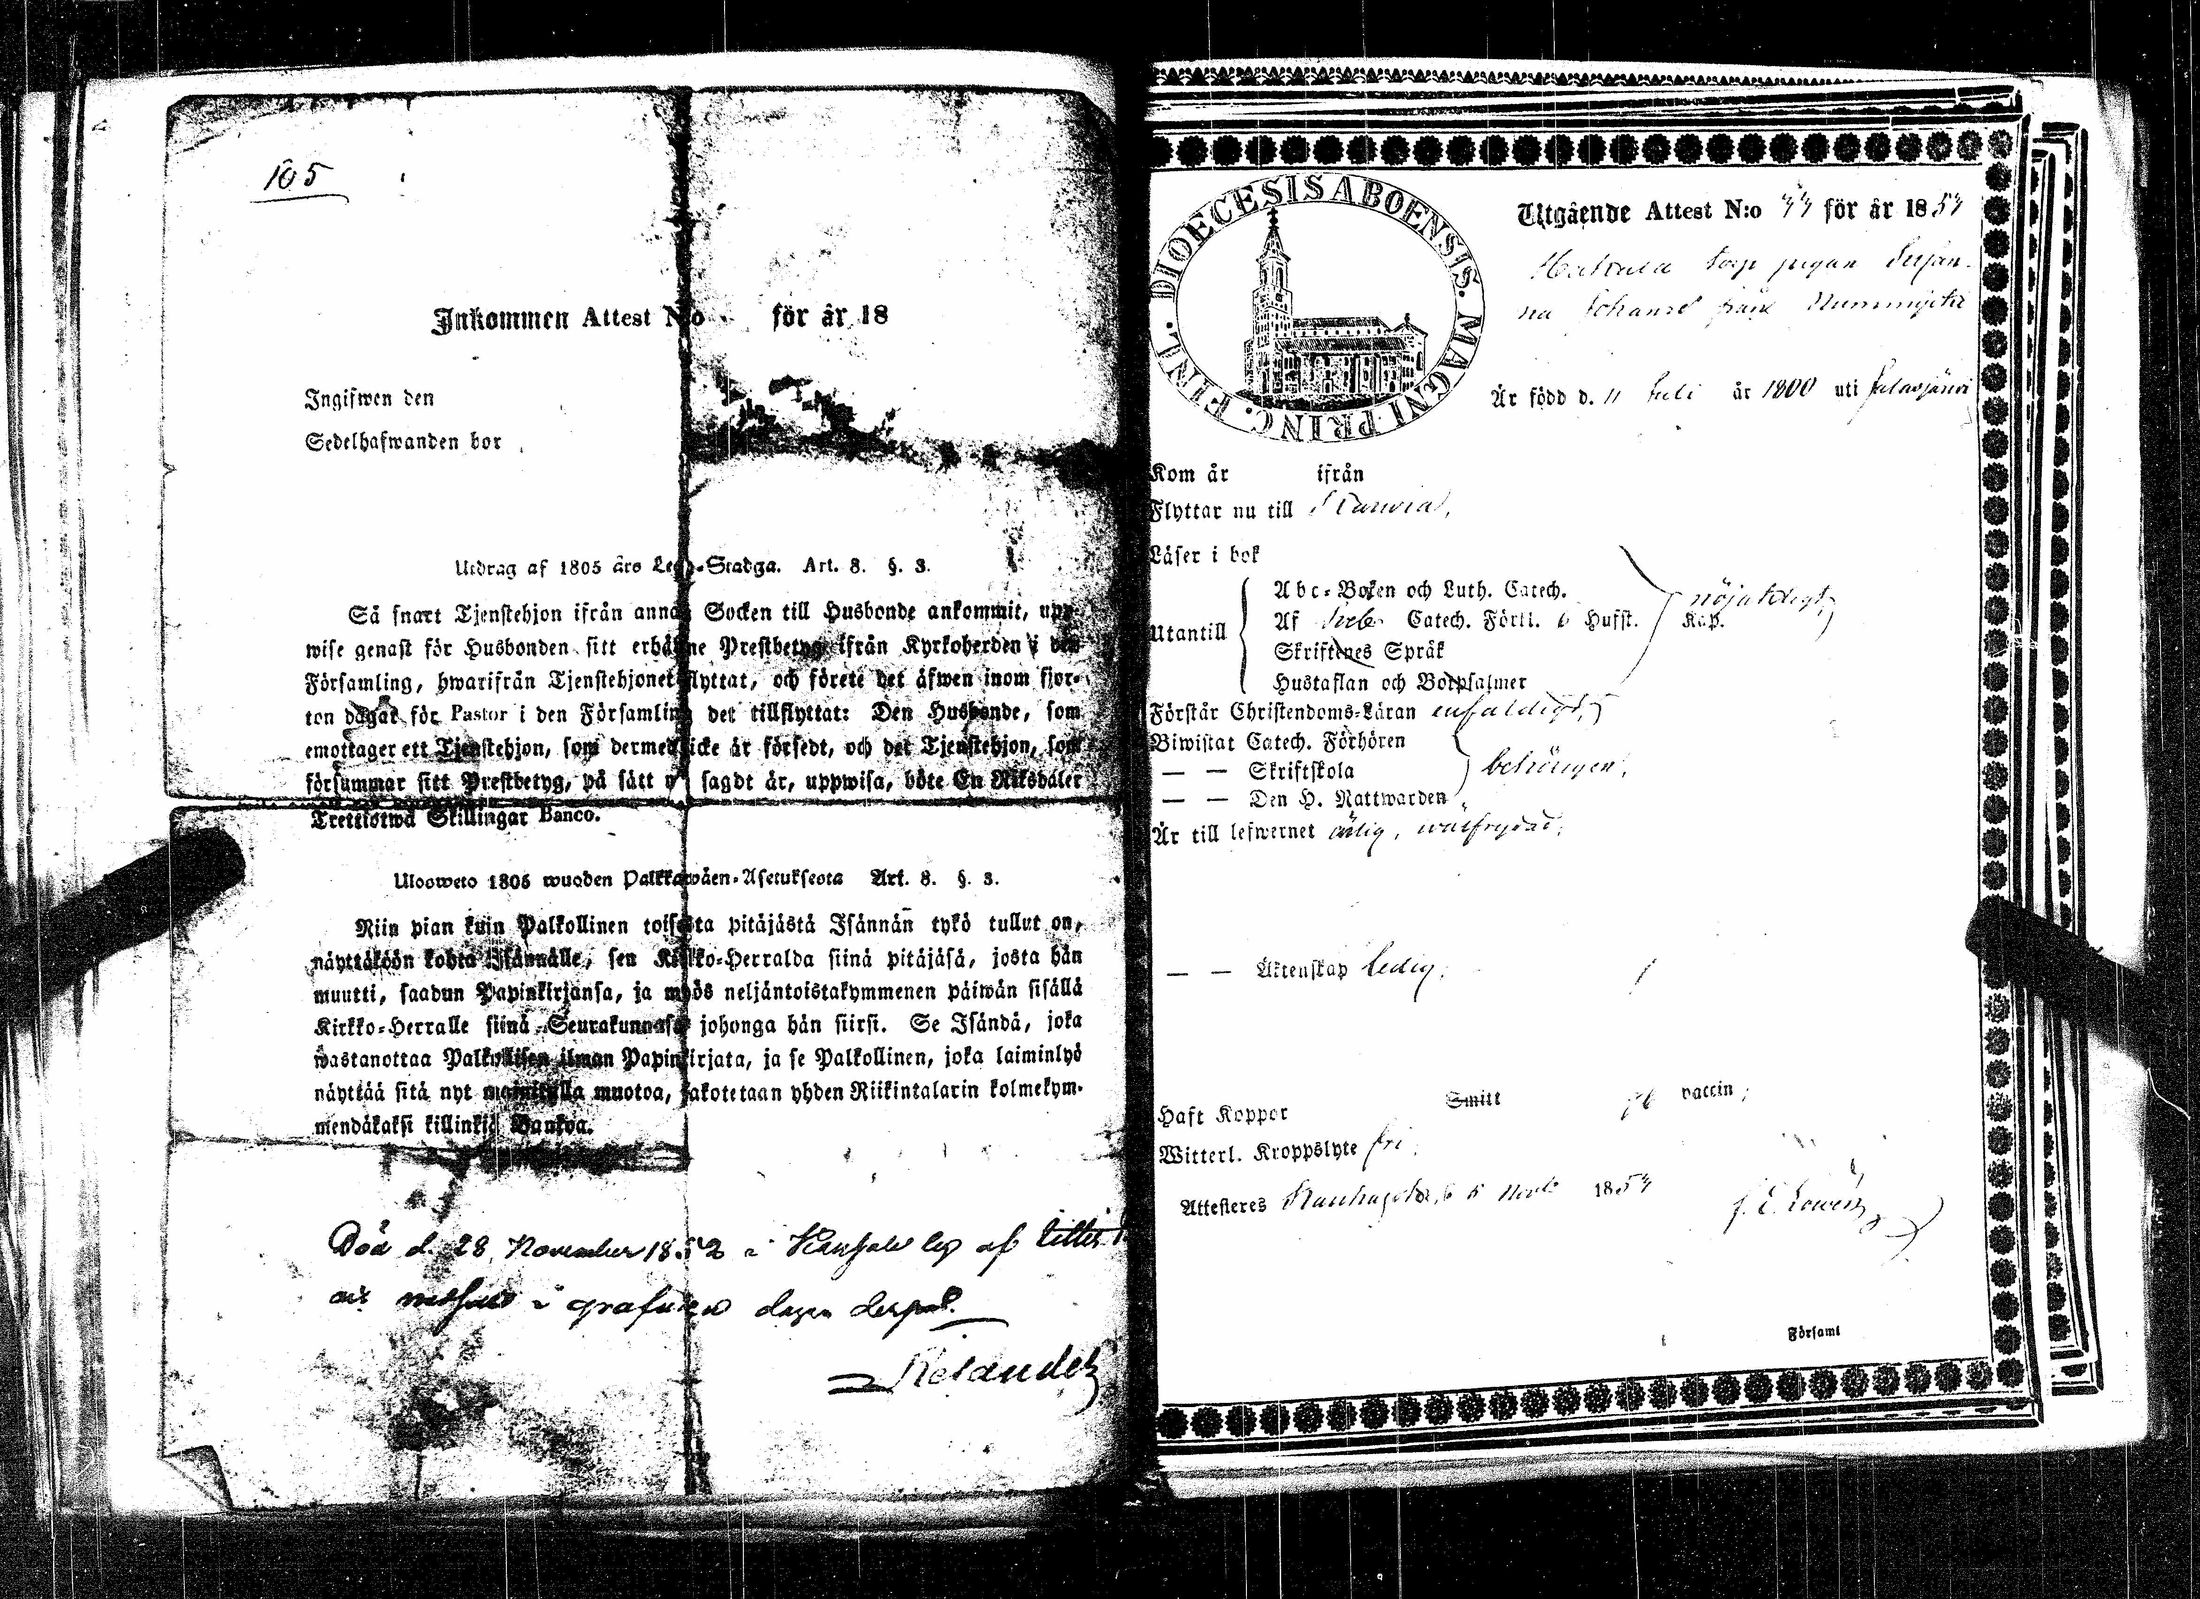 105
Inkommen Attest N:o för år 18
Ingifwen den
Sedelhafwanden bor
Utdrag af 1805 års Lego-Stadga. Art. 8. §. 3.
Så snart Tjenstehjon ifrån annan Socken till Husbonde ankommit, upp-
wise genast för Husbonden sitt erhållne Prestbetyg ifrån Kyrkoherden i den
Församling, hwarifrån Tjenstehjonet flyttat, och förete det äfwen inom fjor-
ton dagar för Pastor i den Församling det tillflyttat: Den Husbonde, som
emottager ett Tjenstehjon, som dermed icke är försedt, och det Tjenstehjon, som
försummar sitt Prestbetyg, på sätt nu sagdt är, uppwisa, böte En Riksdaler
Trettiotwå Skillingar Banco.
Ulosweto 1805 wuoden Palkkawäen-Asetuksesta Art. 8. §. 3.
Niin pian kuin Palkollinen toisesta pitäjästä Isännän tykö tullut on,
näyttäköön kohta Isännälle, sen Kirkko-Herralda siinä pitäjäsä, josta hän
muutti, saadun Papinkirjansa, ja myös neljäntoistakymmenen päiwän sisällä
Kirkko-Herralle siinä Seurakunnasa johonga hän siirsi. Se Isändä, joka
wastanottaa Palkollisen ilman Papinkirjata, ja se Palkollinen, joka laiminlyö
näyttää sitä nyt mainitulla muotoa, sakotetaan yhden Riikintalarin kolmekym-
mendäkaksi killinkiä Bankoa.
Död d. 28 November 1852 i af
i grafwen dagen
Relander
DIOECESIS ABOENSIS. MAGNI PRINC. FINL.
Utgående Attest N:o 44 för år 1854
torp pigan
na från
Är född d. 11 Juli år 1800 uti Jalasjärvi
Kom år ifrån
Flyttar nu till
Läser i bok
Utantill
Abc-Boken och Luth. Catech.
Af Catech. Förkl. 6 Hufst. Kap.
Skriftenes Språk
Hustaflan och Botpsalmer
nöjaktigt,
Förstår Christendoms-Läran enfaldigt,
Biwistat Catech. Förhören
— — Skriftskola
— — Den H. Nattwarden
behörigen,
Är till lefwernet ärlig, wälfrejdad,
— — Äktenskap ledig,
Haft Koppor Smitt vaccin;
Witterl. Kroppslyte fri,
Attesteras 1854
Församl